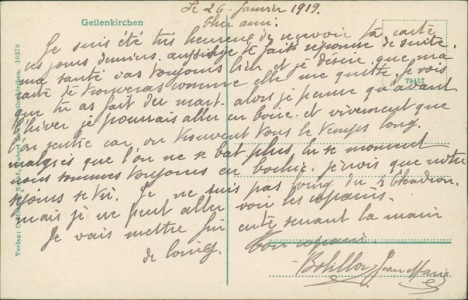 Geilenkirchen
Le 26 Janvier 1919.
Cher ami.
Je suis été très heureux de recevoir ta carte
ces jours derniers, aussi je te fais réponse de suite.
ma santé vas toujours bien et je désire que ma
carte te trouveras comme elle me quitte. je vois
que tu as fait du mart. alors je pense qu'avant
l'hiver je pourrais aller en et vivement que
l'on car on trouvent tous le temps long.
malgrés que l'on ne se bat plus, En se moment
nous sommes toujours en bochie, je vois que notre
se Je ne suis pas loing du
mais je ne peut aller voir les copains.
Je vais mettre fin carte serrant la main
de loing. Ton copain
Jean Marie
79457
Verlag: